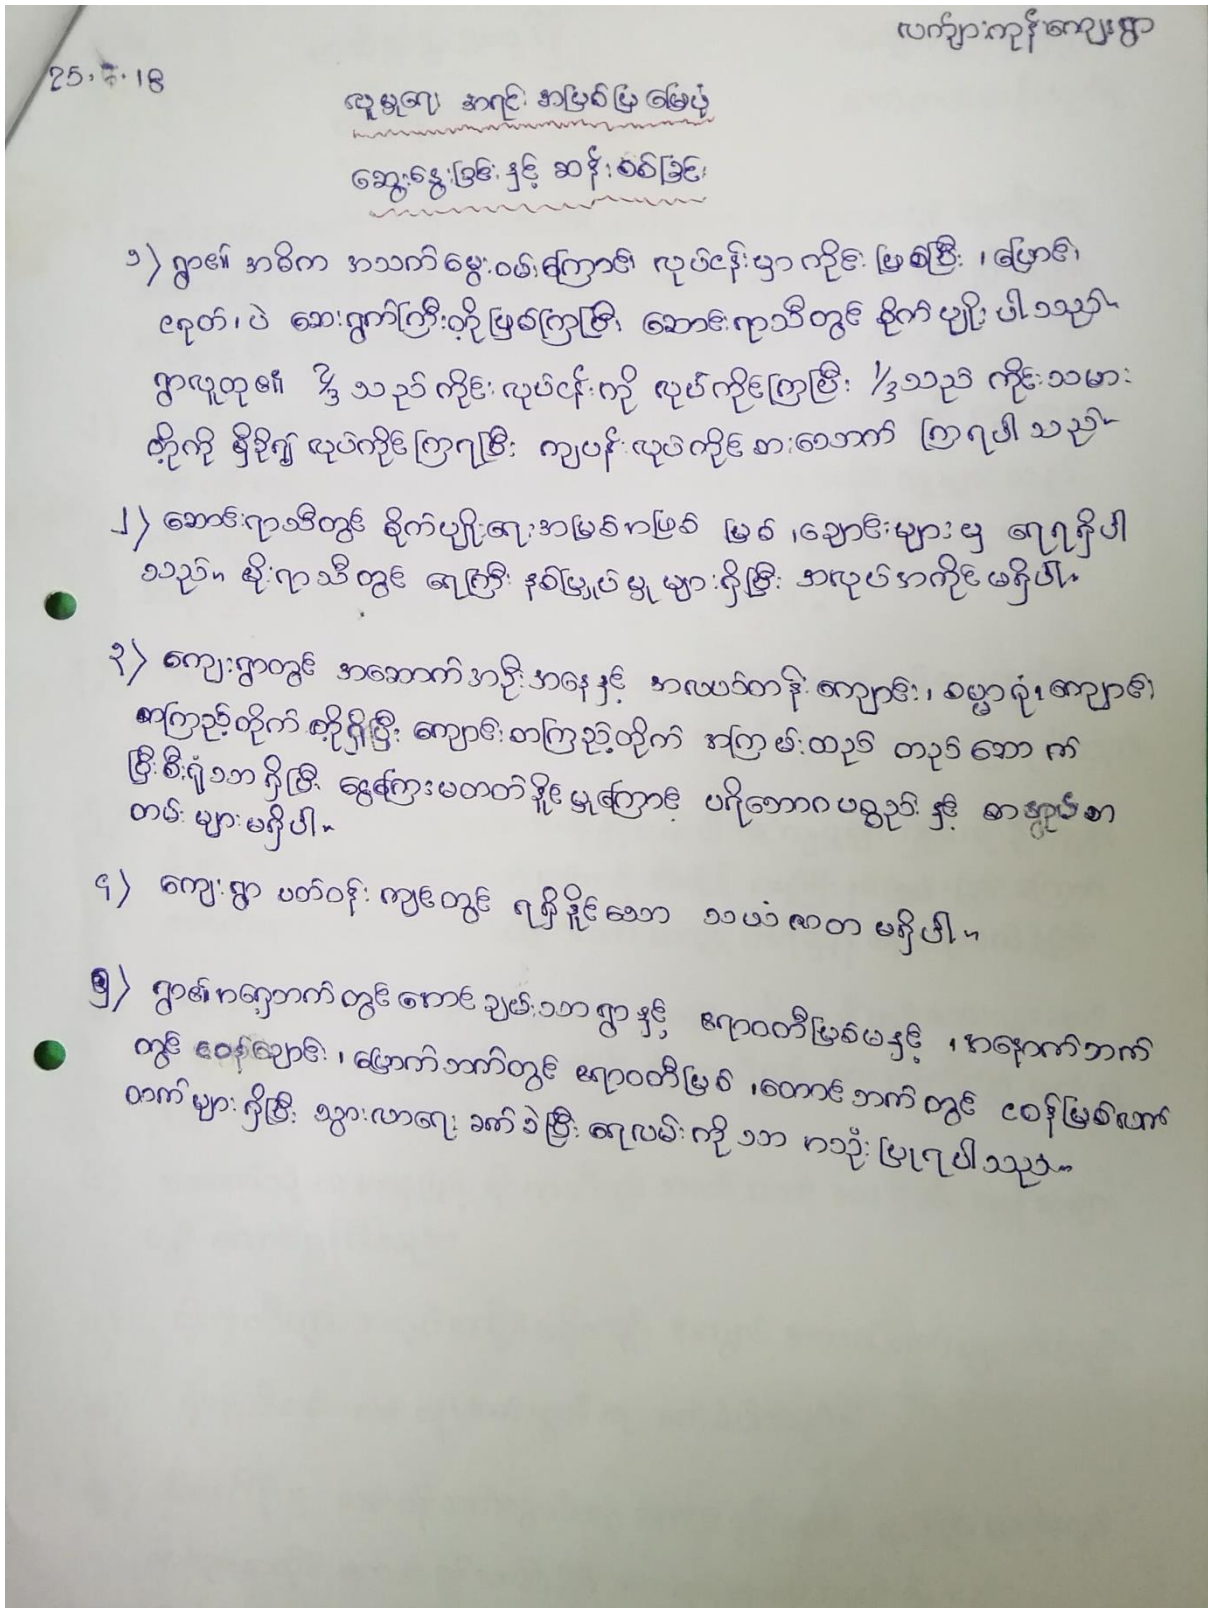 လက်ျားကုန်းကျေးရွာ
25. .18
လူမှုရေး အရင်းအမြစ်ပြမြေပုံ
ဆွေးနွေးခြင်းနှင့် ဆန်းစစ်ခြင်း
၁) ရွာ၏ အဓိက အသက်မွေးဝမ်းကြောင်း လုပ်ငန်းမှာ ကိုင်းဖြစ်ပြီး ၊ ပြောင်း၊
ငရုတ်၊ ပဲ ဆေးရွက်ကြီးတို့ဖြစ်ကြပြီး ဆောင်းရာသီတွင် စိုက်ပျိုးပါသည်။
ရွာလူထု၏ ⅔ သည် ကိုင်းလုပ်ငန်းကို လုပ်ကိုင်ကြပြီး ⅓ သည် ကိုင်းသမား
တို့ကို မှီခို၍ လုပ်ကိုင်ကြရပြီး ကျပန်းလုပ်ကိုင်စားသောက် ကြရပါသည်။
၂) ဆောင်းရာသီတွင် စိုက်ပျိုးရေးအမြစ်အဖြစ် မြစ် ၊ချောင်းများမှ ရေရရှိပါ
သည်။ မိုးရာသီတွင် ရေကြီး နစ်မြှုပ်မှုများရှိပြီး အလုပ်အကိုင်မရှိပါ။
၃) ကျေးရွာတွင် အဆောက်အဦးအနေနှင့် အလယ်တန်းကျောင်း၊ ဓမ္မာရုံ၊ကျောင်း
စာကြည့်တိုက် တို့ရှိပြီး ကျောင်းစာကြည့်တိုက် အကြမ်းထည် တည်ဆောက်
ပြီးစီးရုံသာရှိပြီး ငွေကြေးမတတ်နိုင်မှုကြောင့် ပရိဘောဂပစ္စည်းနှင့် စာအုပ်စာ
တမ်းများမရှိပါ။
၄) ကျေးရွာ ပတ်ဝန်းကျင်တွင် ရရှိနိုင်သော သယံဇာတ မရှိပါ။
၅) ရွာ၏အရှေ့ဘက်တွင် အောင်ချမ်းသာရွာနှင့် ဧရာဝတီမြစ်မနှင့် ၊အနောက်ဘက်
တွင် ငဝန်ချောင်း ၊မြောက်ဘက်တွင် ဧရာဝတီမြစ် ၊တောင်ဘက်တွင် ငဝန်မြစ်လက်
တက်များရှိပြီး သွားလာရေး ခက်ခဲပြီး ရေလမ်းကိုသာ အသုံးပြုရပါသည်။